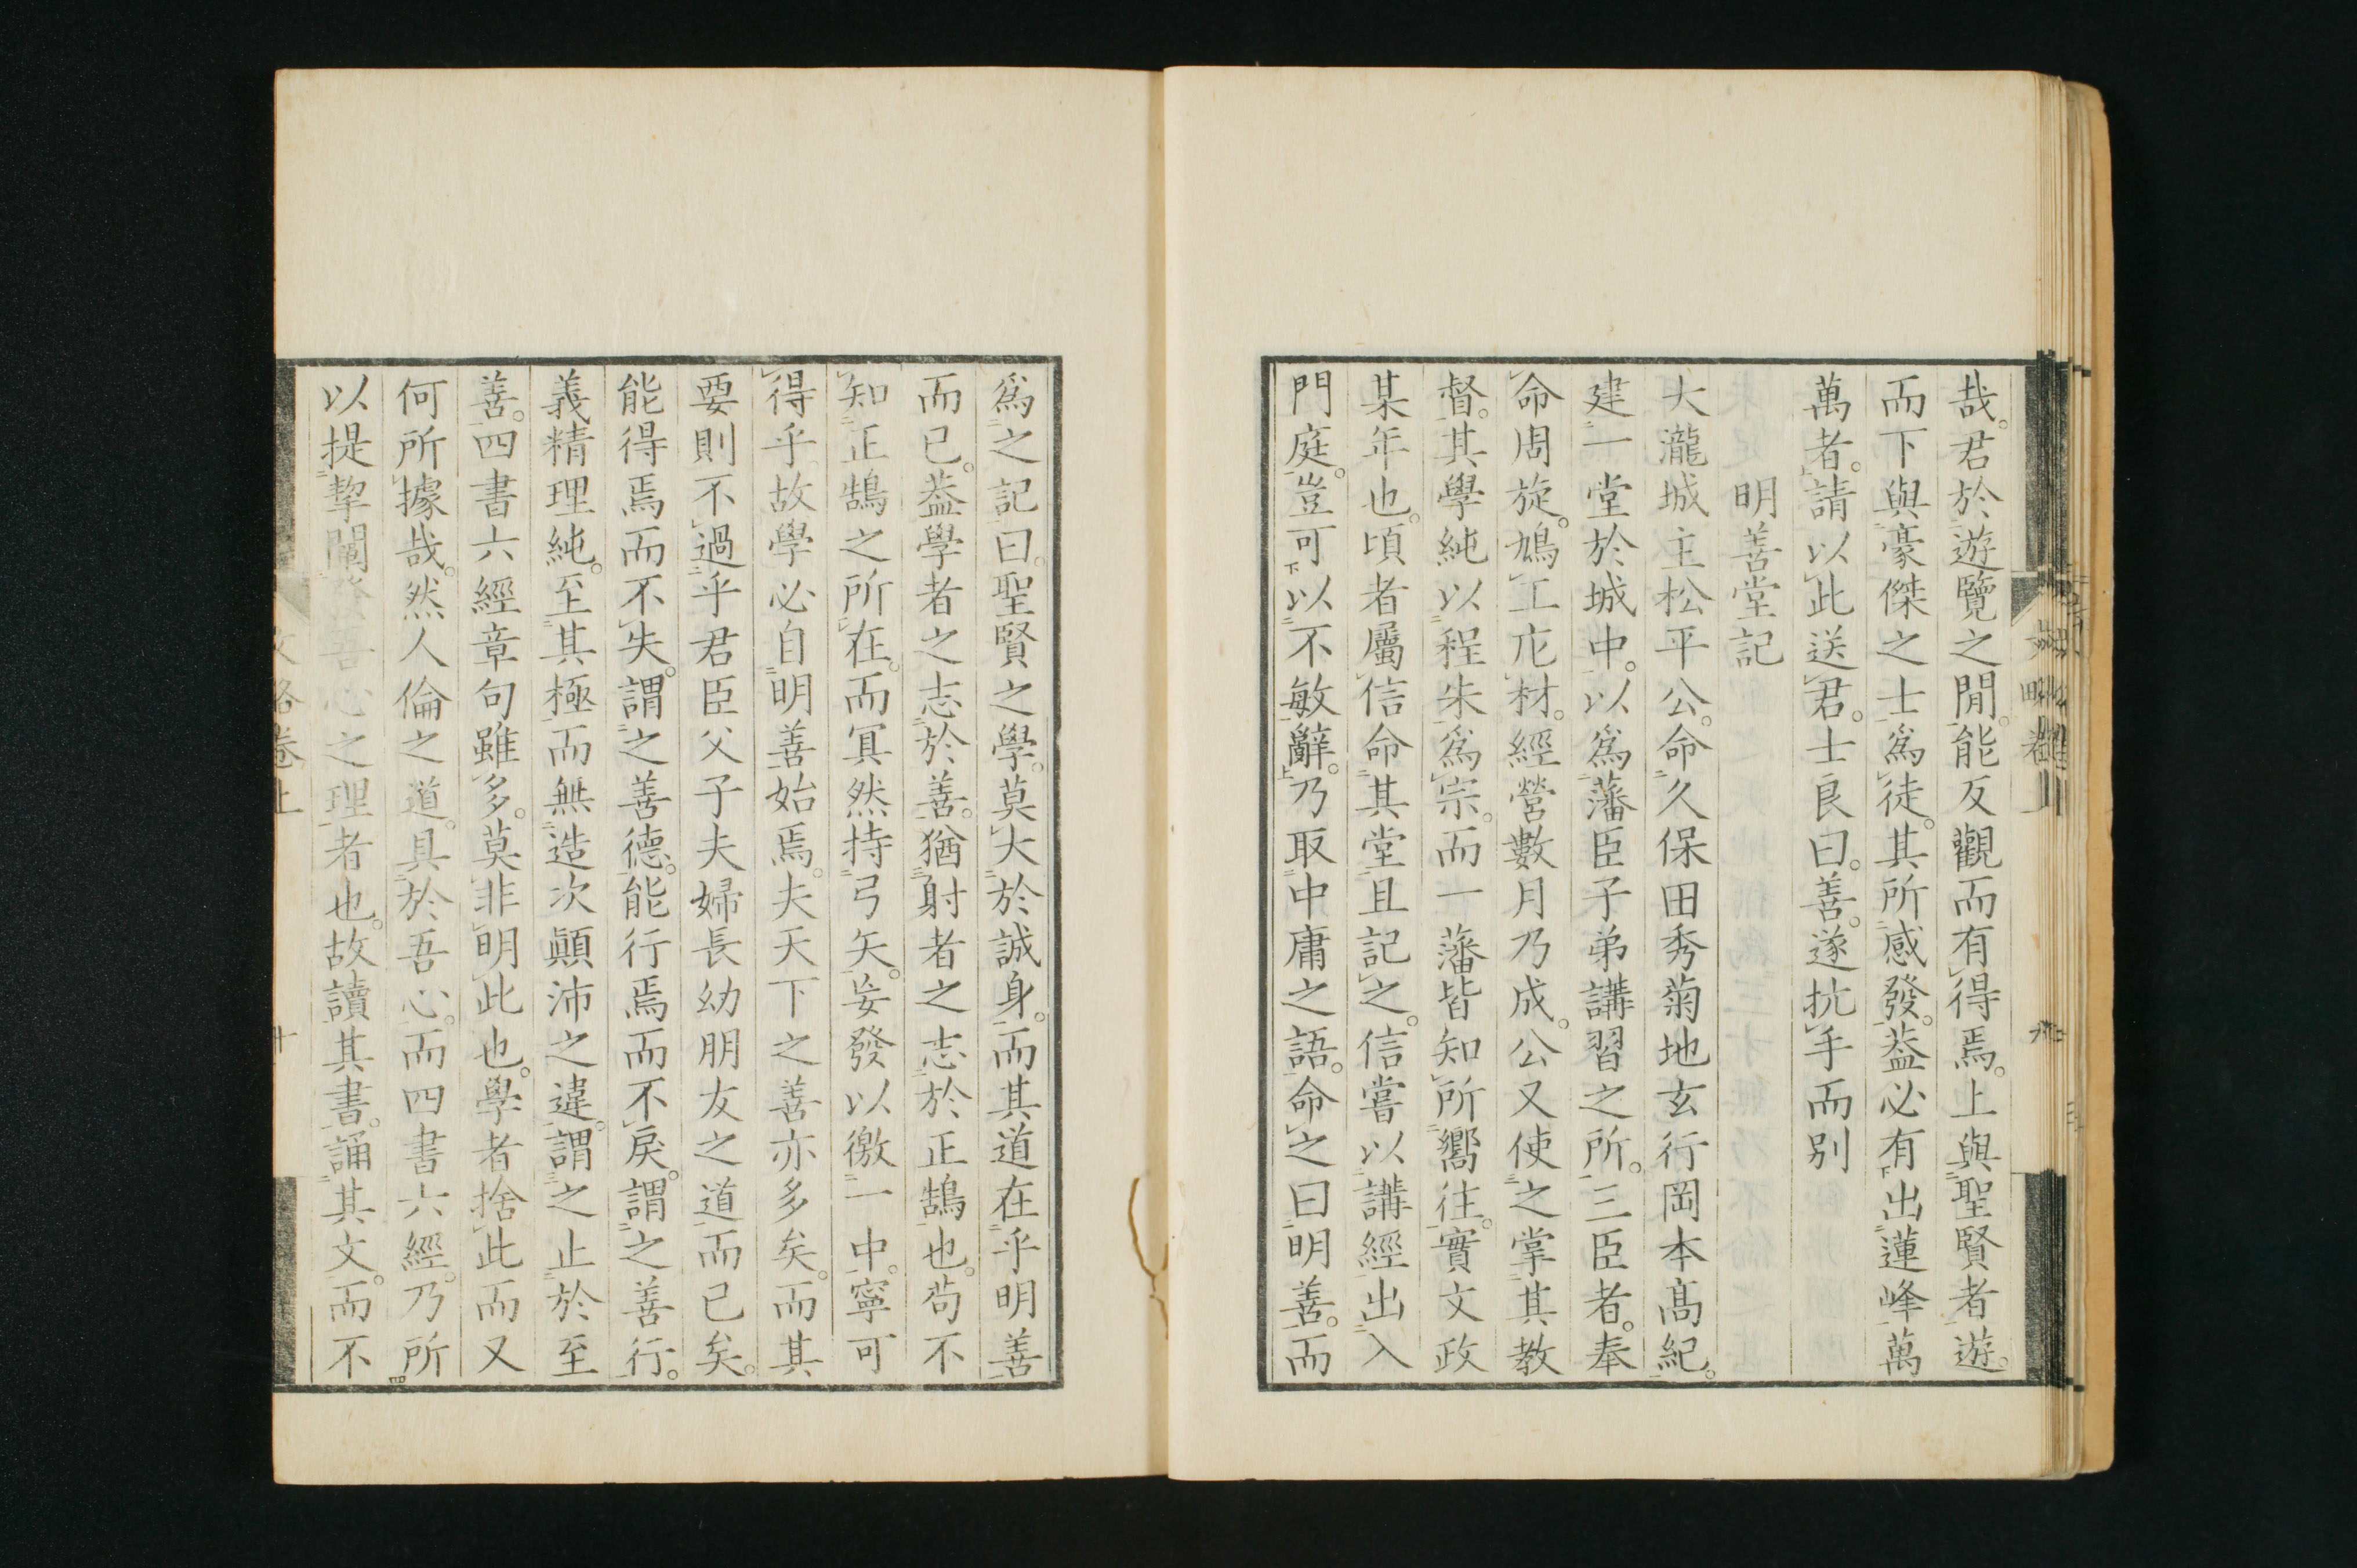 哉。君於遊覽之閒。能反觀而有得焉。上與聖賢者遊。
而下與豪傑之士爲徒。其所感發。葢必有出蓮峰萬
萬者。請以此送君。士良曰。善。遂抗手而別
明善堂記
大瀧城主松平公。命久保田秀菊地玄行岡本髙紀。
建一堂於城中。以爲藩臣子弟講習之所。三臣者。奉
命周旋。鳩工庀材。經營數月乃成。公又使之掌其教
督。其學純以程朱爲宗。而一藩皆知所嚮往。實文政
某年也。頃者屬信命其堂且記之。信嘗以講經出入
門庭。豈可以不敏辭。乃取中庸之語。命之曰明善。而
爲之記曰。聖賢之學。莫大於誠身。而其道在乎明善
而已。葢學者之志於善。猶射者之志於正鵠也。苟不
知正鵠之所在。而冥然持弓矢。妄發以徼一中。寧可
得乎。故學必自明善始焉。夫天下之善亦多矣。而其
要則不過乎君臣父子夫婦長幼朋友之道而已矣。
能得焉而不失。謂之善德。能行焉而不戾。謂之善行。
義精理純。至其極而無造次顚沛之違。謂之止於至
善。四書六經章句雖多。莫非明此也。學者捨此而又
何所據哉。然人倫之道。具於吾心。而四書六經。乃所
以提挈闡發吾心之理者也。故讀其書。誦其文。而不
文略卷上
十